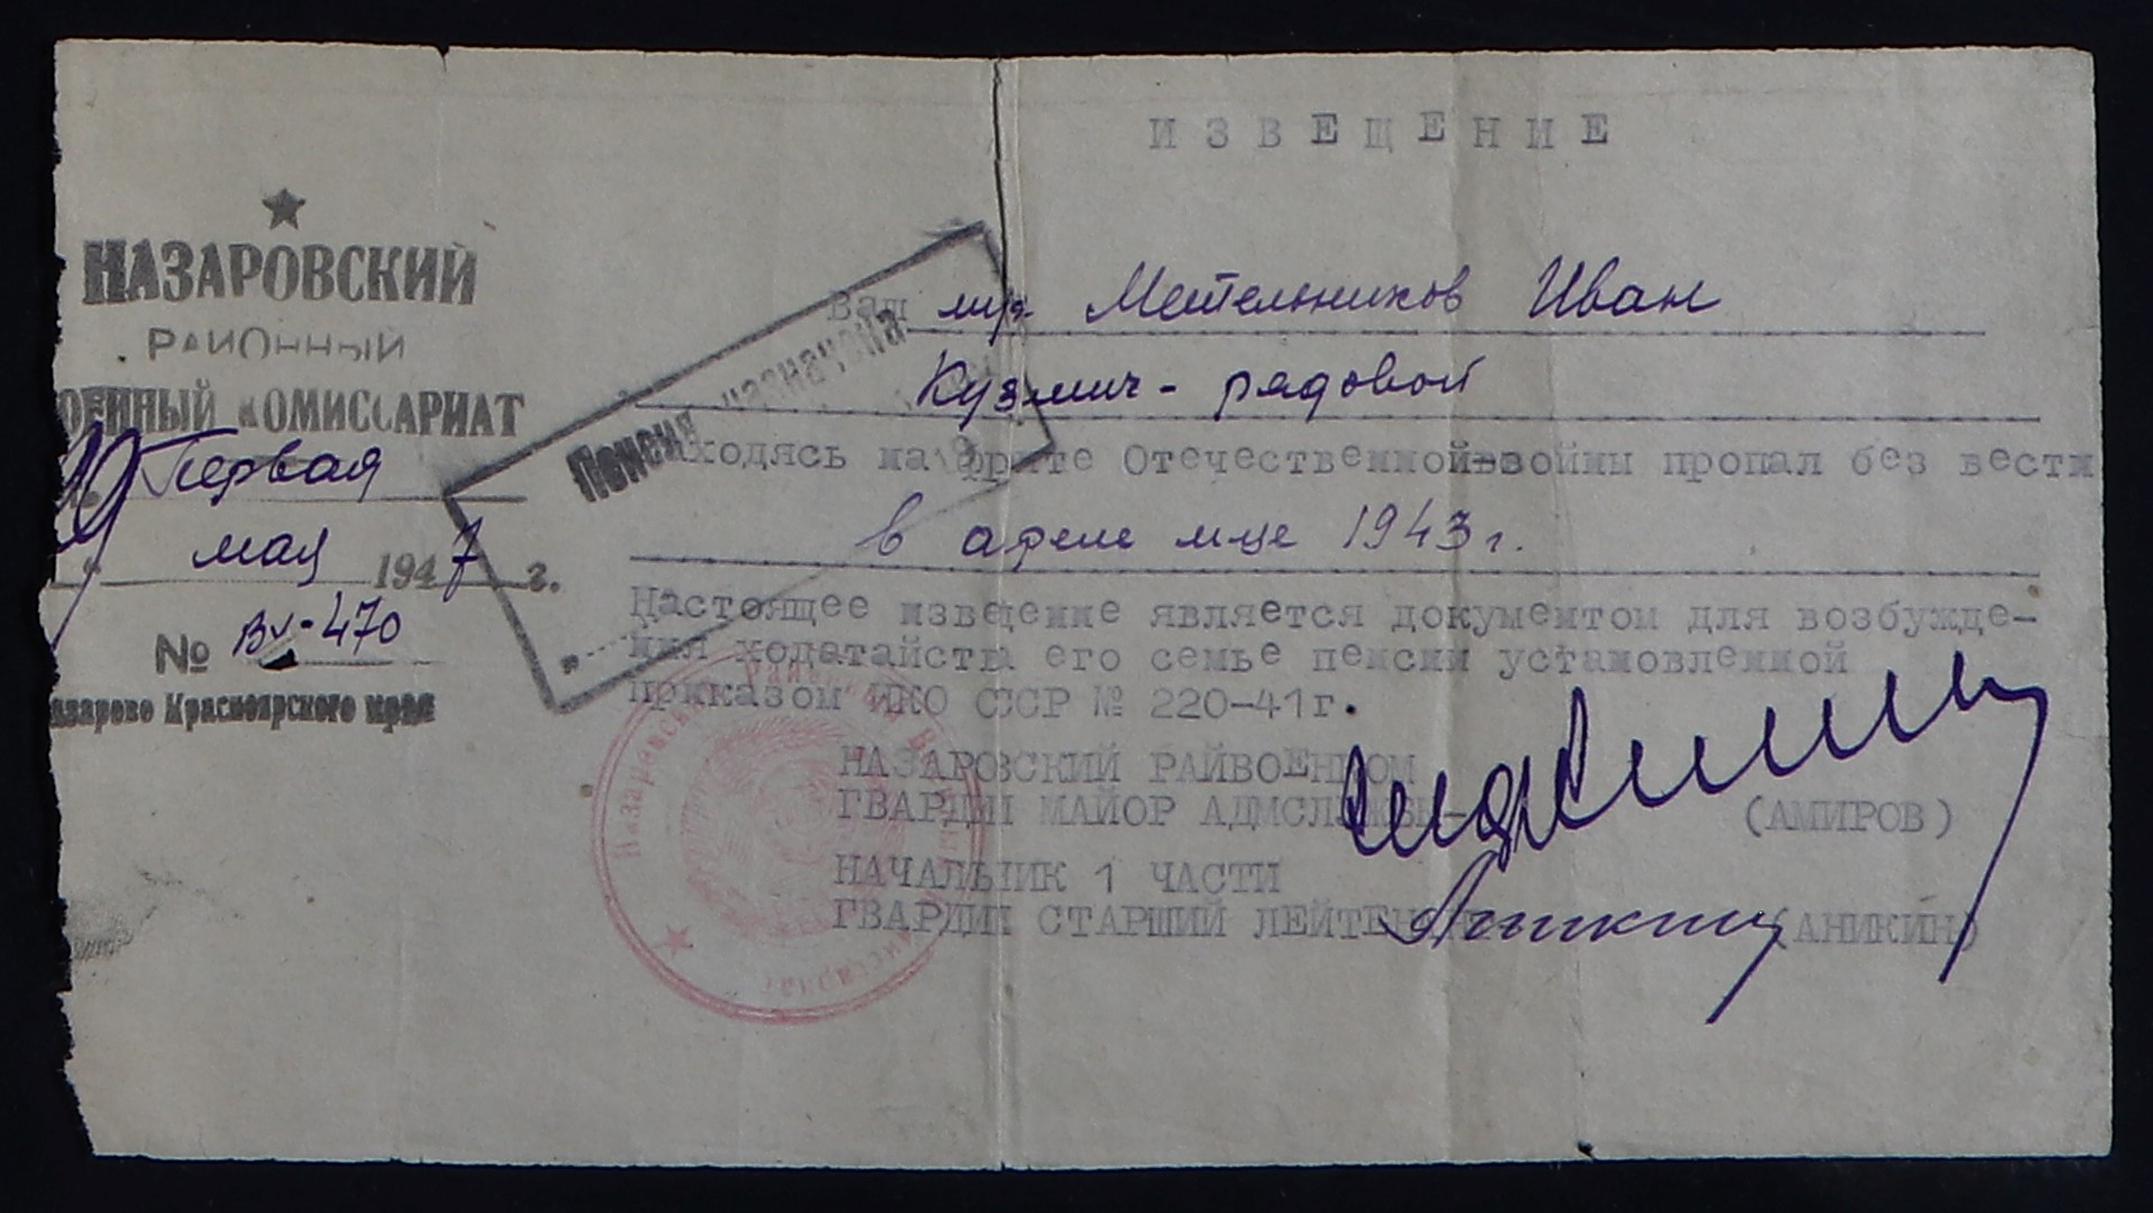 ИЗВЕЩЕНИЕ
НАЗАРОВСКИЙ
РАЙОННЫЙ
ОЕННЫЙ КОМИССАРИАТ
Первая
19 мая 1947 г.
№ 470
азарово Красноярского края
Пенсия назначена
Ваш муж Метельников Иван
Кузмич - рядовой
находясь на фронте Отечественной войны пропал без вести
в апреле м-це 1943 г.
Настоящее извещение является документом для возбужде-
ния ходатайства его семье пенсии установленной
приказом НКО СССР № 220-41г.
НАЗАРОВСКИЙ РАЙВОЕНКОМ
ГВАРДИИ МАЙОР АДМСЛУЖБЫ- (АМИРОВ)
НАЧАЛЬНИК 1 ЧАСТИ
ГВАРДИИ СТАРШИЙ ЛЕЙТЕНАНТ Аникин (АНИКИН)
Назаровский Районный Военный Комиссариат